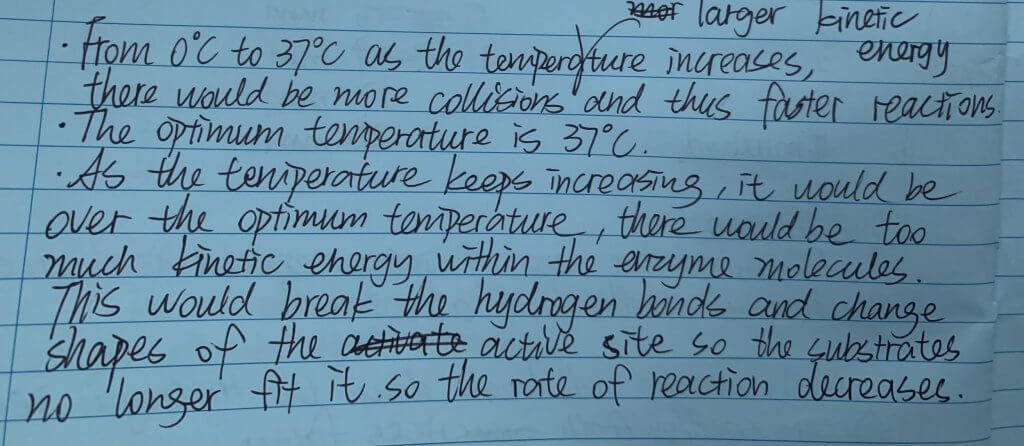 larger kinetic
energy
· From 0°C to 37°C as the temperature increases,
there would be more collisions and thus faster reactions.
· The optimum temperature is 37°C.
· As the temperature keeps increasing, it would be
over the optimum temperature, there would be too
much kinetic energy within the enzyme molecules.
This would break the hydrogen bonds and change
shapes of the active site so the substrates
no longer fit it. so the rate of reaction decreases.